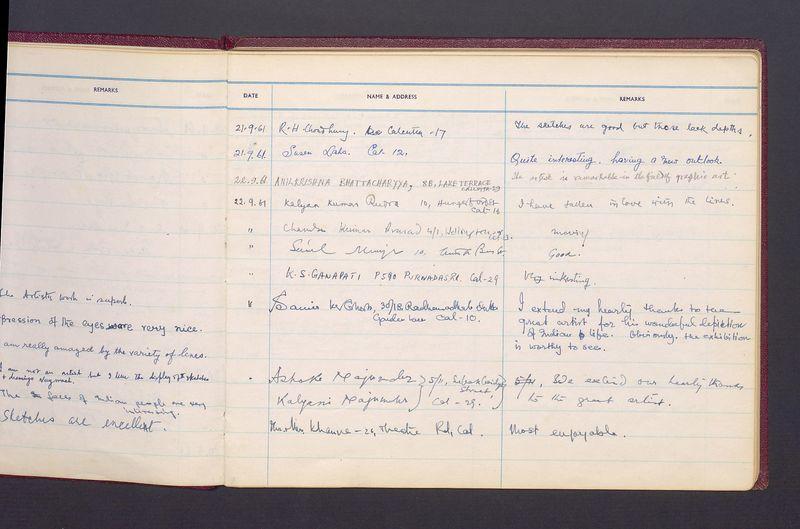 REMARKS
The Artists work is superb.
pression of the eyes were very nice.
am really amazed by the variety of lines.
I am not an artist but I like the display of the sketches
The faces of Indian people are very
interesting.
Sketches are excellent.
DATE NAME & ADDRESS REMARKS
21-9-61 R-H Chowdhury. Calcutta-17 The sketches are good but those lack depths.
21.9.61 Cal. 12. Quite interesting. having a new outlook.
22.9.61 ANILKRISHNA BHATTACHARYYA, 8B, LAKE TERRACE CALCUTTA-29 The artist is remarkable in the field of graphic art.
22.9.61 Kalyan Kumar Rudra 10, Hungerford Cal-16 I have fallen in love with the lines.
" Chandra Kumar Prasad 4/1, moving
" Sunil 10, Good.
" K.S. GANAPATI P590 PURNADAS RD. Cal-29 Very interesting.
" 30/1B Cal-10. I extend my hearty thanks to the
great artist for his wonderful depiction
of Indian life. Obviously the exhibition
is worthy to see.
" Ashoke Majumder 5/11, We extend our hearty thanks
Kalyani Majumder Cal-29. to the great artist.
Khanna - 26, Theatre Rd, Cal. Most enjoyable.